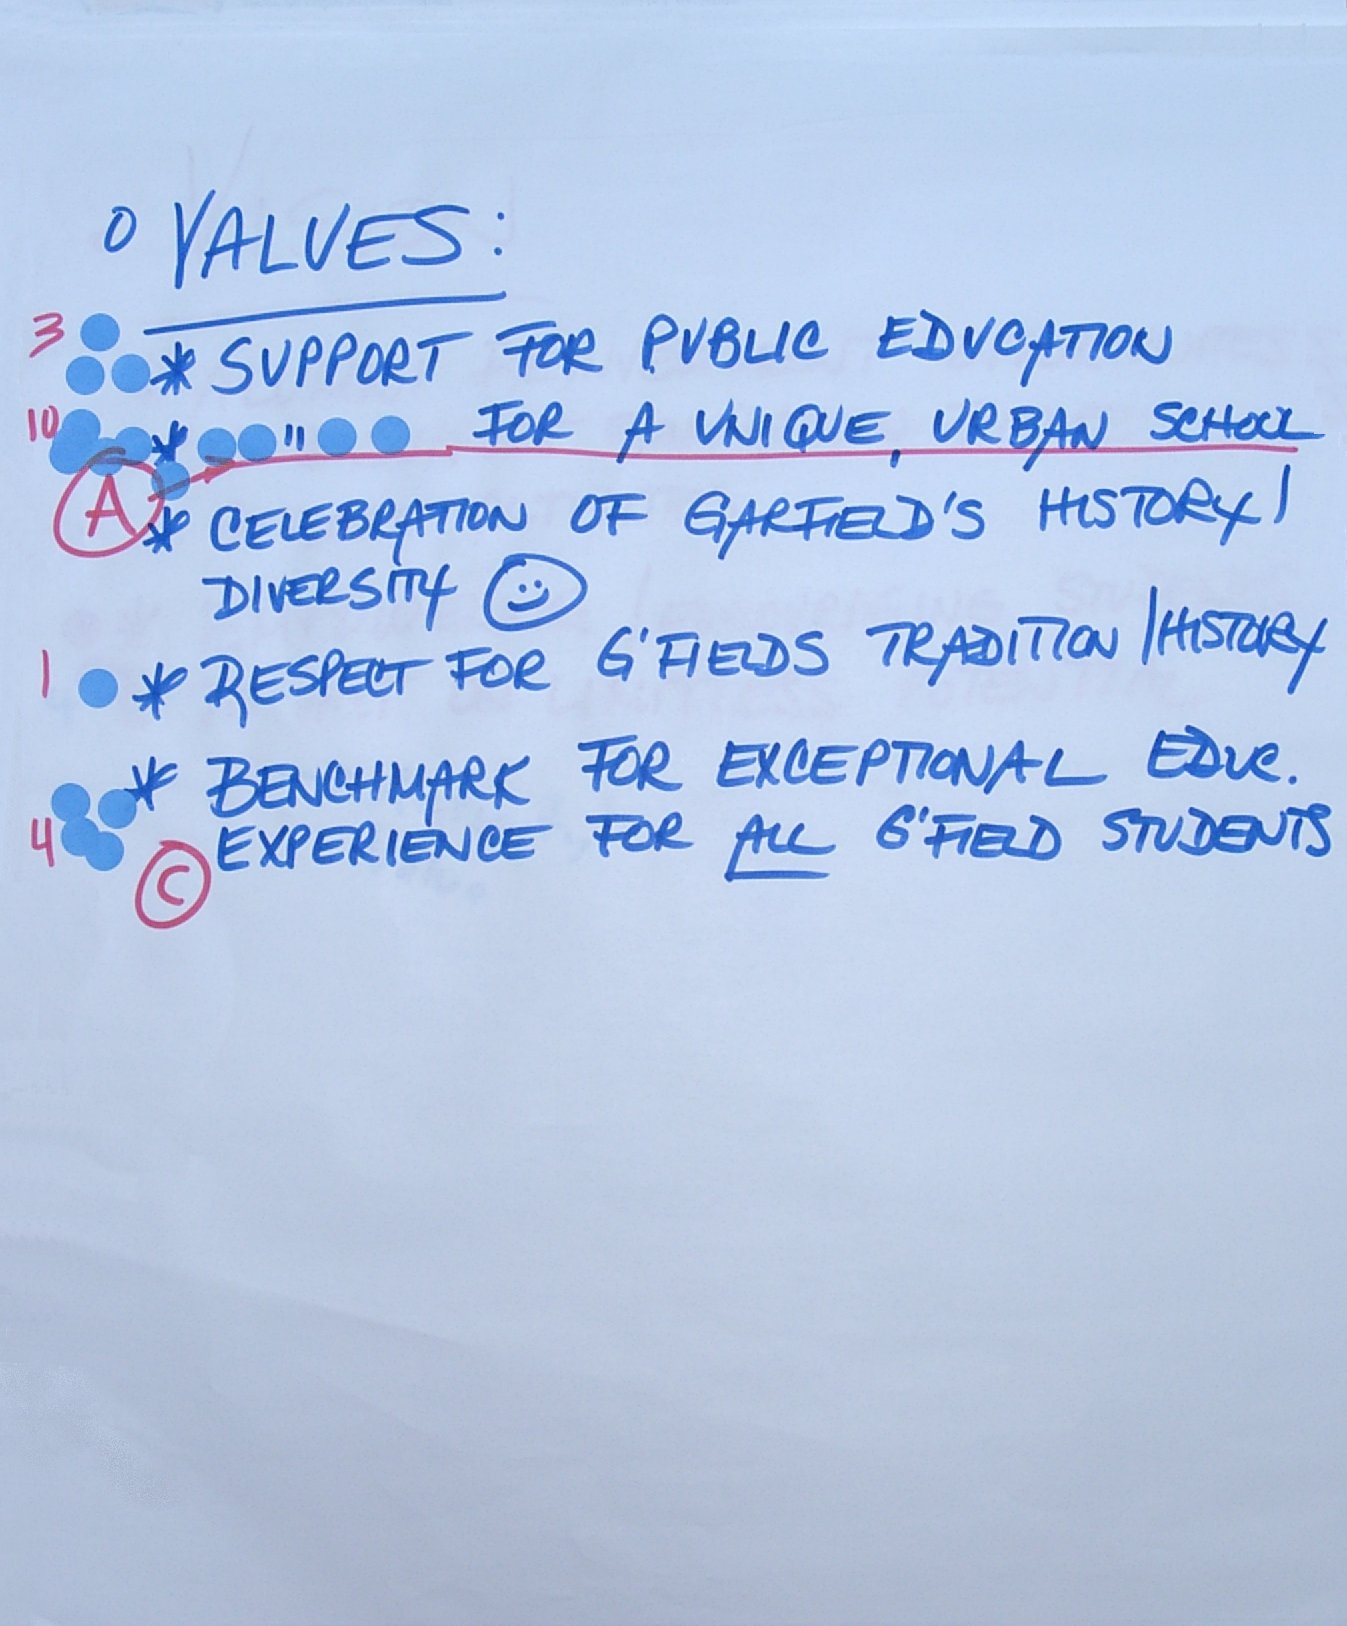 o VALUES:
3 * SUPPORT FOR PUBLIC EDUCATION
10 * " FOR A UNIQUE, URBAN SCHOOL
A
* CELEBRATION OF GARFIELD'S HISTORY/
DIVERSITY
1 * RESPECT FOR G'FIELDS TRADITION/HISTORY
* BENCHMARK FOR EXCEPTIONAL EDUC.
4 EXPERIENCE FOR ALL G'FIELD STUDENTS
C